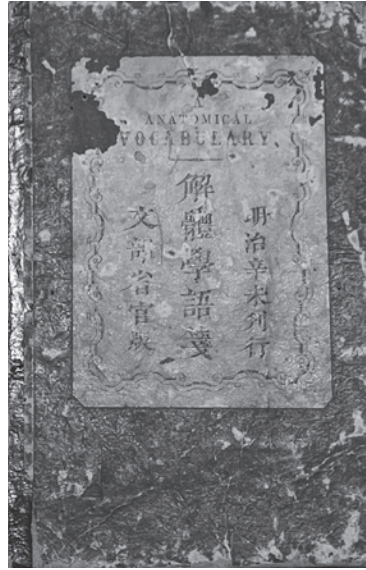 A
ANATOMICAL
VOCABULARY.
明治辛未刊行
解體學語箋
文部省官版